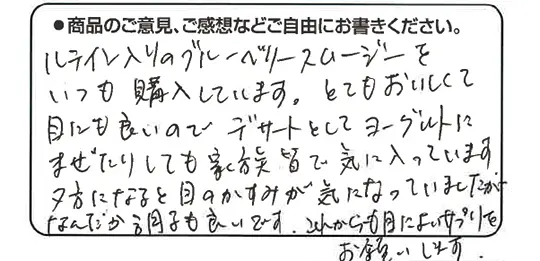 ●商品のご意見、ご感想などご自由にお書きください。
ルテイン入りのブルーベリースムージーを
いつも購入しています。とてもおいしくて
目にも良いので デザートとして ヨーグルトに
まぜたりしても家族皆で気に入っています
夕方になると目のかすみが気になっていましたが
なんだか調子も良いです。これからも目によいサプリを
お願いします。